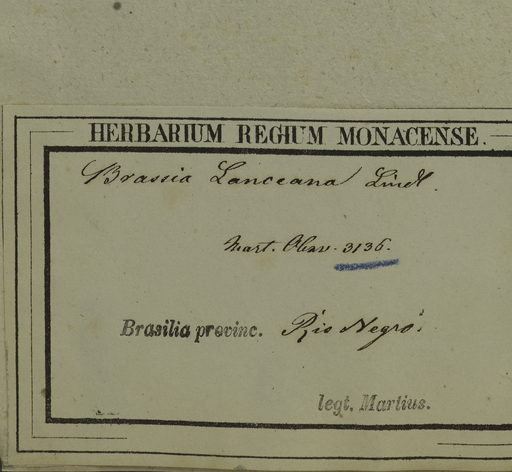 HERBARIUM REGIUM MONACENSE.
Brassia Lanceana Lindl.
Mart. Obsv. 3136.
Brasilia provinc. Rio Negro.
legt. Martius.